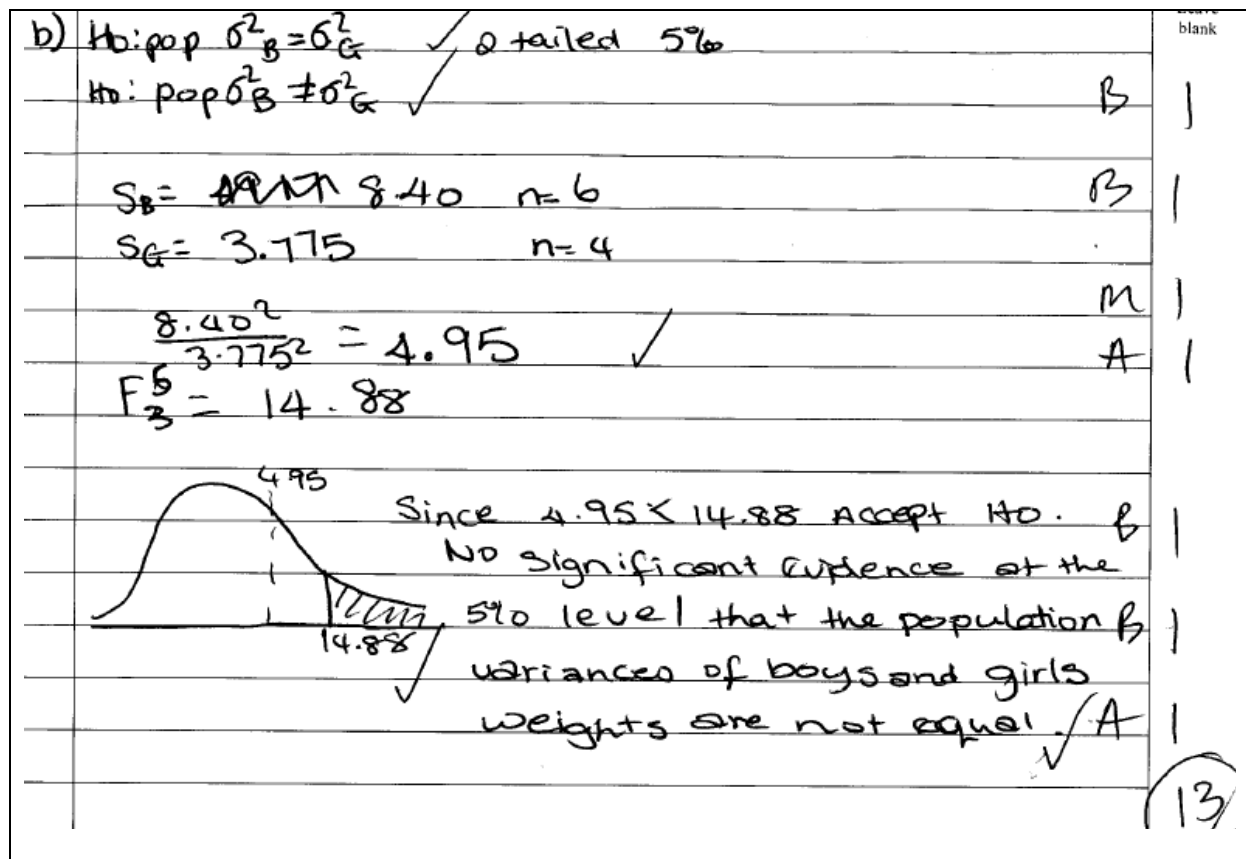 Leave
blank
b) Ho: pop σ²B = σ²G ✓ 2 tailed 5%
Ho: pop σ²B ≠ σ²G ✓ B 1
SB = 8.40 n = 6 B 1
SG = 3.775 n = 4
M 1
8.40² / 3.775² = 4.95 ✓ A 1
F⁵₃ = 14.88
4.95
Since 4.95 < 14.88 Accept Ho. B 1
No significant evidence at the
5% level that the population B 1
14.88 ✓
variances of boys and girls
weights are not equal. ✓ A 1
13